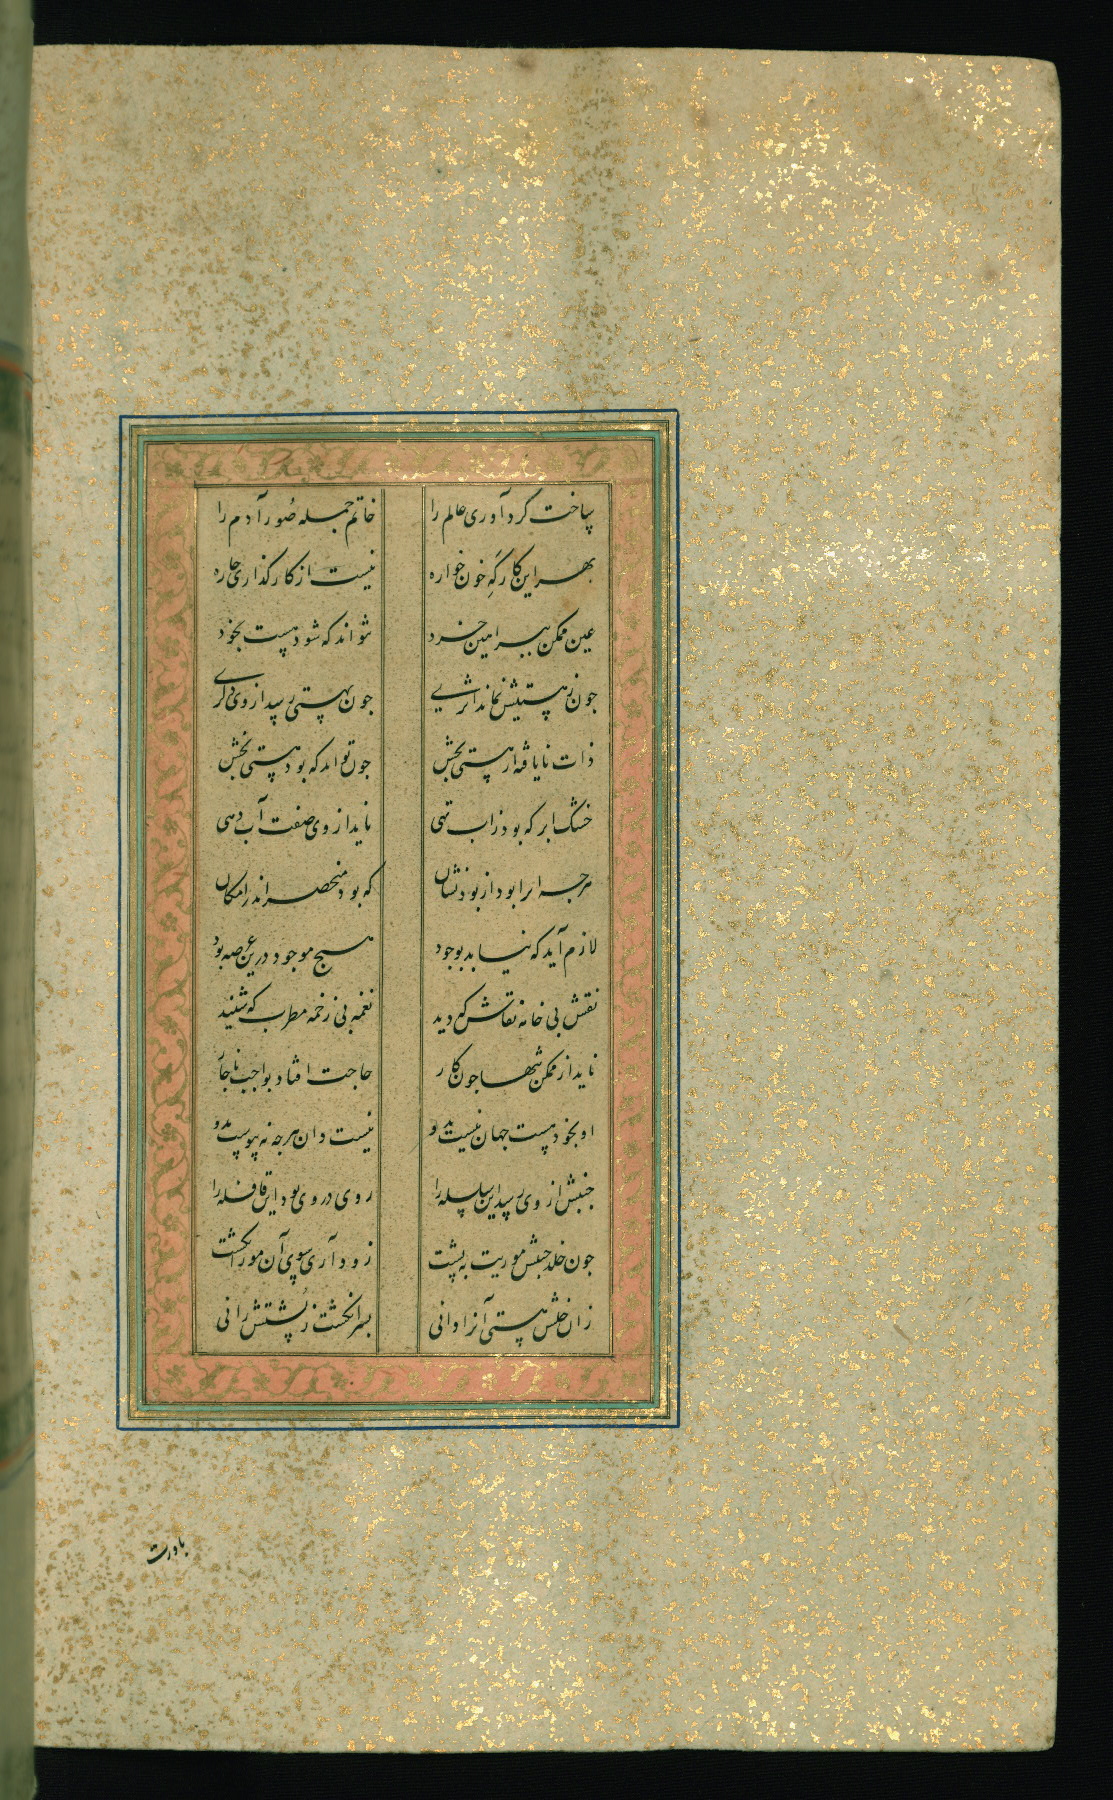 ساخت گرد آوری عالم را خاتم جمله صور آدم را
بهر این کارگه خون خواره نیست از کارگذاری چاره
عین ممکن ببراهین خرد نتواند که شود هست بخود
چون ز هستیش نماند اثری چون بهستی رسید از وی دگری
ذات نایافته از هستی بخش چون تواند که بود هستی بخش
خشک ابر که بود ز آب تهی ناید از وی صفت آب دهی
هرچه ار بود از بود نشان که بود منحصر اندر امکان
لازم آید که نیاید بوجود هیچ موجود درین عرصه بود
نقش بی خامه نقاش که دید نغمه بی زخمه مطرب که شنید
ناید از ممکن تنها چون کار حاجت افتاد بواجب ناچار
او بخود هست جهان نیست بدو نیست دان هرچه نه پیوست بدو
جنبش از وی رسید این سلسله را روی در وی بود این قافله را
چون خلد جنبش موریت به پشت زود آری سوی آن مور انگشت
زان خلش هستی آنرا دانی بسر انگشت ز پشتش رانی
باورت